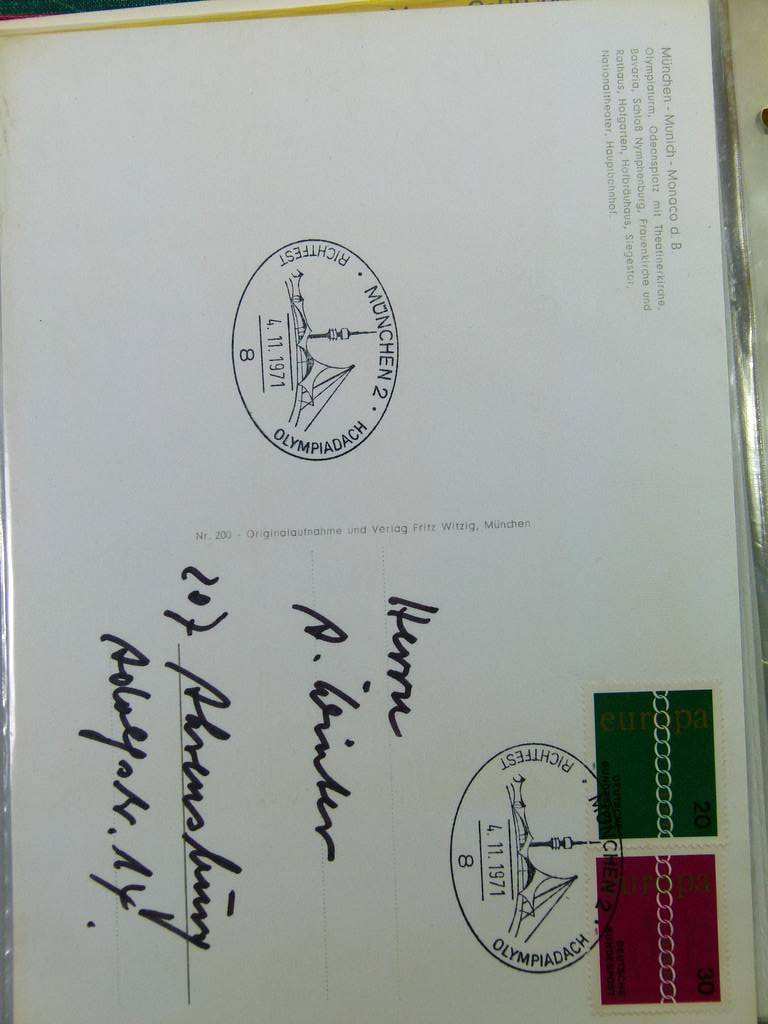 München - Munich - Monaco d. B.
Olympiaturm, Odeonsplatz mit Theatinerkirche,
Bavaria, Schloß Nymphenburg, Frauenkirche und
Rathaus, Hofgarten, Hofbräuhaus, Siegestor,
Nationaltheater, Hauptbahnhof.
MÜNCHEN 2
4.11.1971
8
RICHTFEST
OLYMPIADACH
Nr. 200 - Originalaufnahme und Verlag Fritz Witzig, München
europa
DEUTSCHE
BUNDESPOST
20
europa
DEUTSCHE
BUNDESPOST
30
MÜNCHEN 2
4.11.1971
8
RICHTFEST
OLYMPIADACH
Herrn
A. Winter
207 Ahrensburg
Adolfstr. 14.